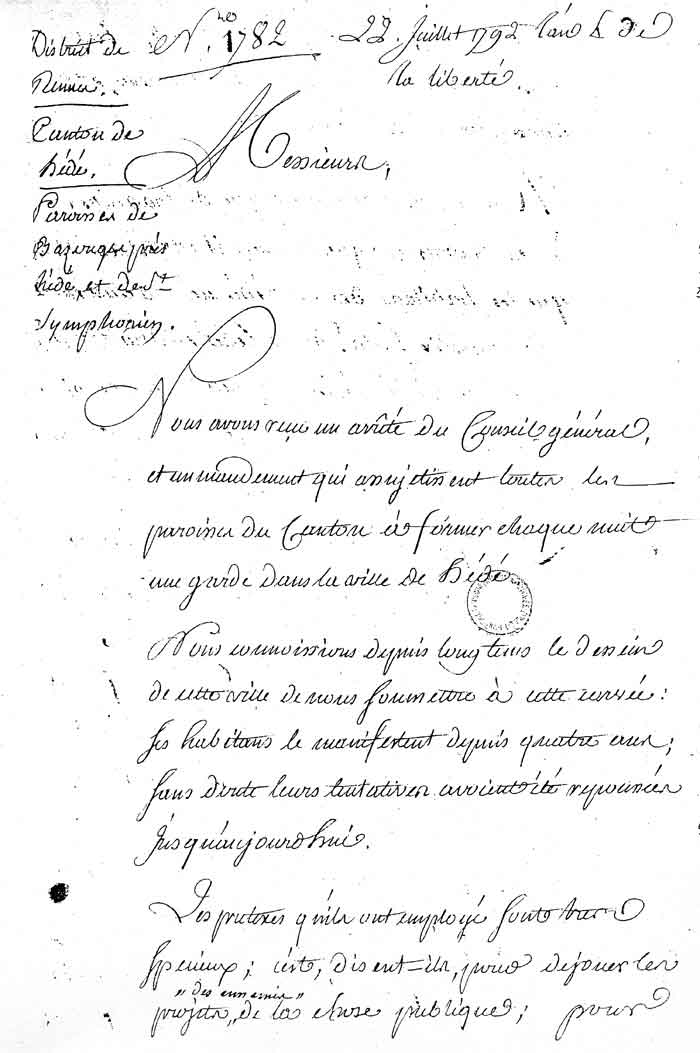 District de
Rennes.
Canton de
hédé.
Paroisses de
Bazouges près
hédé, et de St
Symphorien.
N.ro 1782
22. Juillet 1792 l'an 4 de
la liberté.
Messieurs,
Nous avons reçu un arrêté du Conseil général,
et un mandement qui assujetissent toutes les
paroisses du Canton à former chaque nuit
une garde dans la ville de hédé.
Nous connoissions depuis longtems le dessein
de cette ville de nous soumettre à cette corvée:
ses habitans le manifestent depuis quatre ans;
sans doute leurs tentatives avoient été repoussées
jusqu'aujourd'hui.
Les pretextes qu'ils ont employé sont bien
specieux; c'est, disent-ils, pour dejouer les
"des ennemis"
projets, de la chose publique; pour